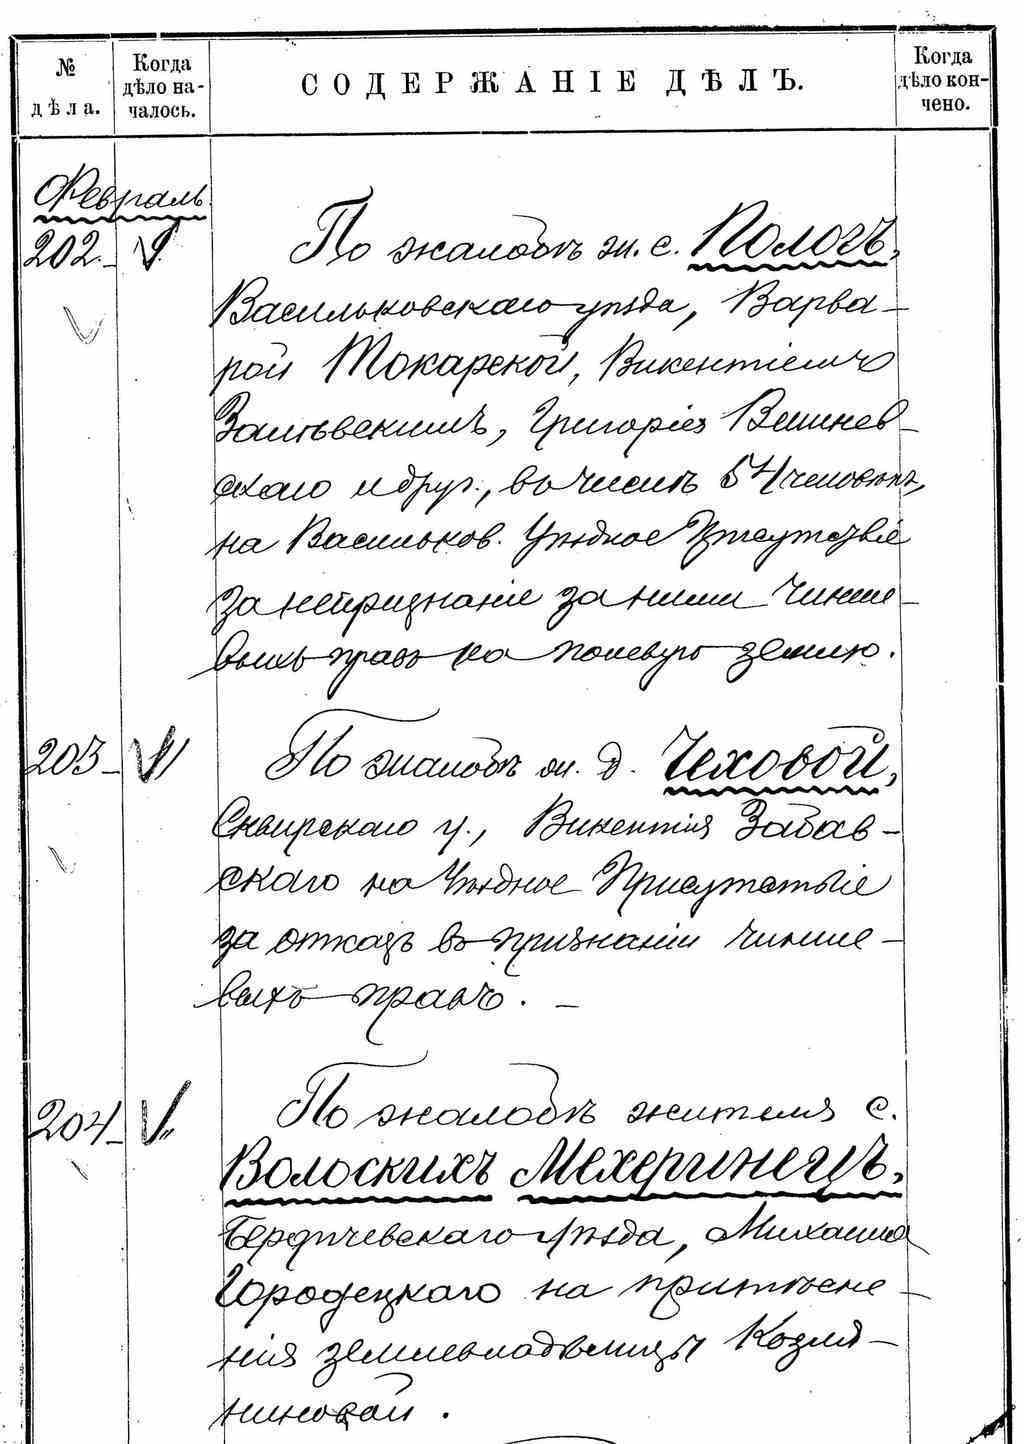 № дѣла.
Когда дѣло началось.
СОДЕРЖАНІЕ ДѢЛЪ.
Когда дѣло кончено.
Февраль.
202. V.
По жалобѣ ж. с. Пологъ,
Васильковскаго уѣзда, Варва-
рой Токарской, Викентіемъ
Залѣвскимъ, Григоріея Вишнев-
скаго и друг., въ числѣ 54 человѣкъ,
на Васильков. Уѣздное Присутствіе
за непризнаніе за ними чинше-
выхъ правъ на полевую землю.
203 V
По жалобѣ ж. д. Чеховой,
Сквирскаго у., Викентія Забав-
скаго на Уѣздное Присутствіе
за отказъ въ признаніи чинше-
выхъ правъ. –
204 V
По жалобѣ жителя с.
Волоскихъ Мехеринецъ,
Бердичевскаго уѣзда, Михаила
Городецкаго на притѣсне-
нія землевладѣлицы Козля-
ниновой.